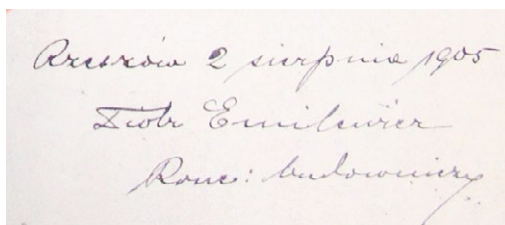 Rzeszów 2 sierpnia 1905
Piotr Emilewicz
Konc: budowniczy